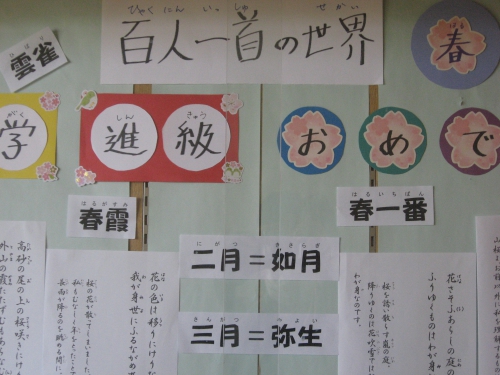 ひゃくにん いっしゅ せかい
百人一首の世界
春
ひばり
雲雀
がく しん きゅう
学進級おめで
はるがすみ
春霞
はるいちばん
春一番
にがつ きさらぎ
二月=如月
さんがつ やよい
三月=弥生
花さそふ
ふりゆくものはわが身
桜を誘い散らす嵐の庭。
降りゆくのは花吹雪では
わが身なのです。
花の色は移りにけりな
我が身世にふるながめ
桜の花が散ってしまいました
高砂の尾の上の桜咲
外山の霞たたず